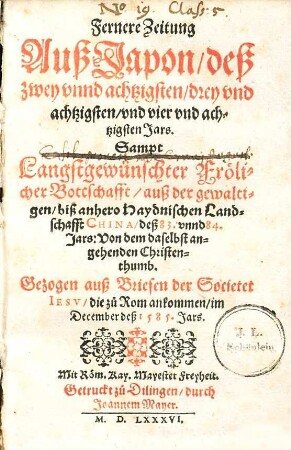 No 19. Class: 5
Fernere Zeitung
Auß Japon/deß
zwey vnnd achtzigsten/drey vnd
achtzigsten/vnd vier vnd ach-
tzigsten Jars.
Sampt
Langstgewünschter FrölI-
cher Bottschafft/auß der gewalti-
gen/biß anhero Haydnischen Land-
schafft CHINA/deß 83. vnnd 84.
Jars: Von dem daselbst an-
gehenden Christen-
thumb.
Gezogen auß Briefen der Societet
IESV/die zů Rom ankommen/im
December deß 1585. Jars.
J. L.
Schönlein
Mit Röm. Kay. Mayestet Freyheit.
Getruckt zů Dilingen/durch
Joannem Mayer.
M. D. LXXXVI.